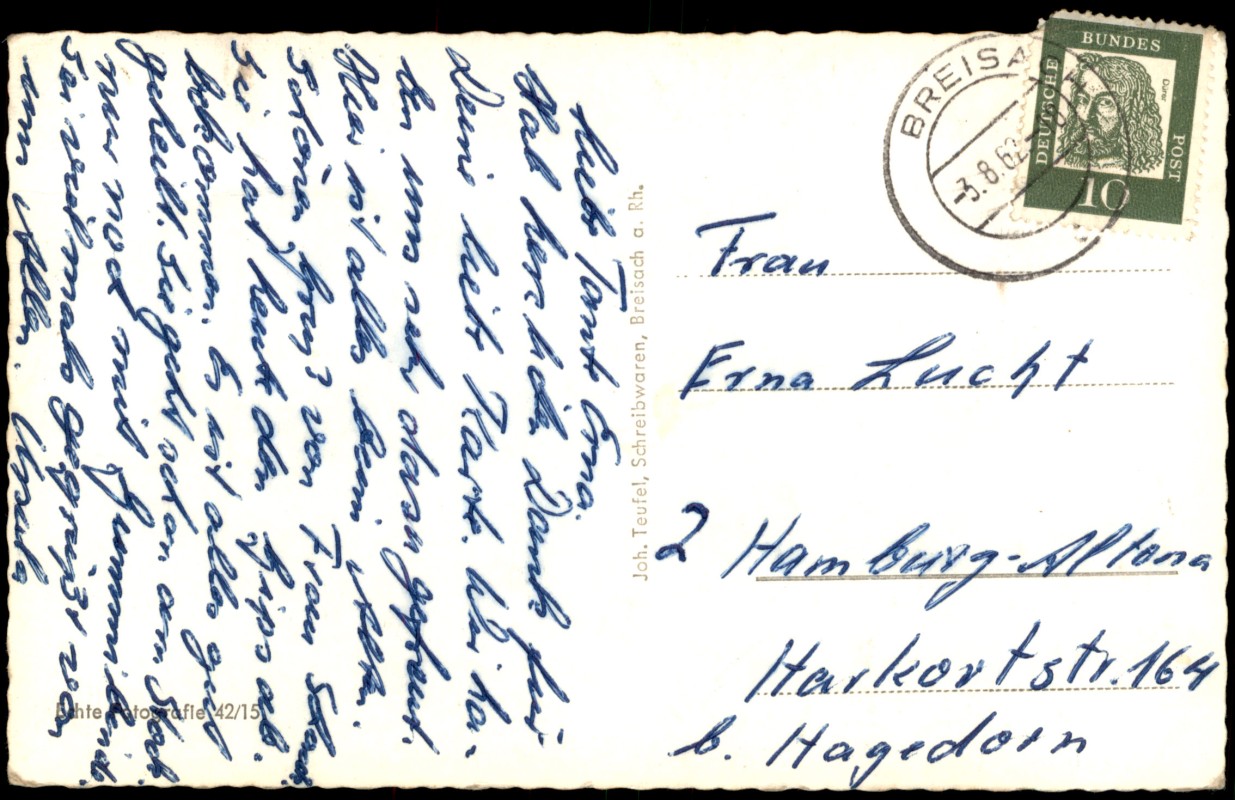 Liebe Tante Erna.
Hab herzliche Dank für
Deine liebe Karte. Wir ha-
ben uns sehr dazu gefreut.
Hier ist alles beim Alten.
Schönen Gruß von Frau Stark.
Sie hat heut den Gips ab-
bekommen. Es ist alles gut
geheilt. Sie geht schon am Stock
nur noch mit Gummikind.
Sei vielmals gegrüßt von
uns Allen.
Ursula
Joh. Teufel, Schreibwaren, Breisach a. Rh.
Echte Fotografie 42/15
BREISACH
-3.8.62
DEUTSCHE BUNDES POST
Dürer
10
Frau
Erna Lucht
2 Hamburg-Altona
Harkortstr. 164
b. Hagedorn